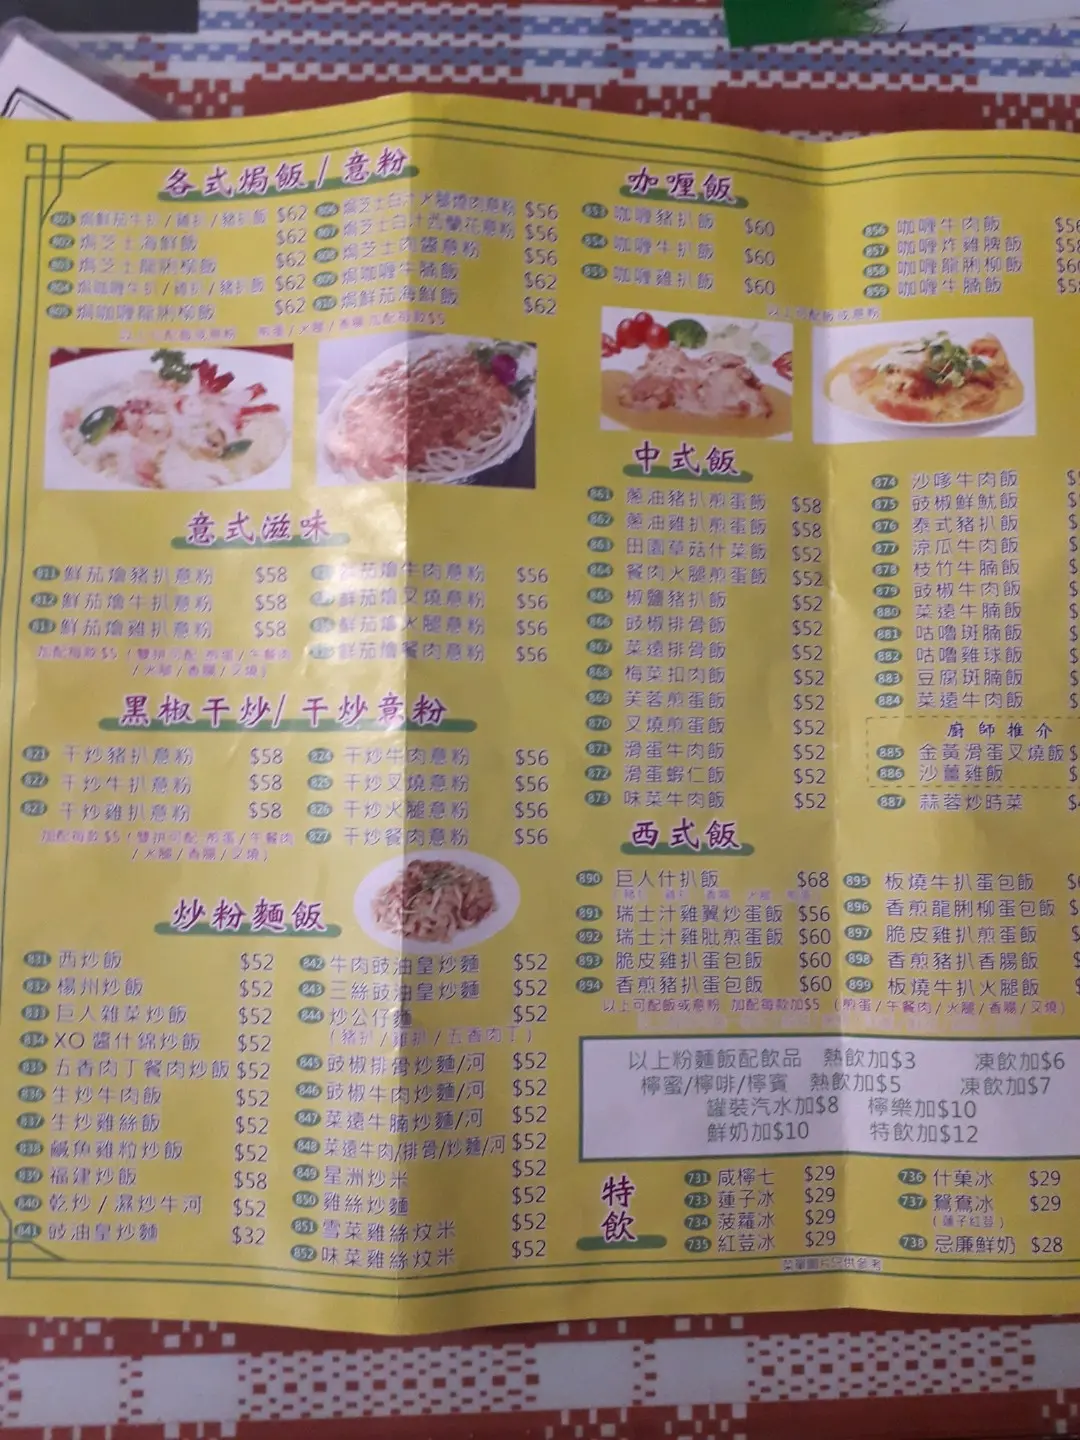 各式焗飯 / 意粉
801 焗鮮茄牛扒 / 雞扒 / 豬扒飯 $62
802 焗芝士海鮮飯 $62
803 焗芝士龍脷柳飯 $62
804 焗咖喱牛扒 / 雞扒 / 豬扒飯 $62
805 焗咖喱龍脷柳飯 $62
806 焗芝士白汁火腿燒肉意粉 $56
807 焗芝士白汁西蘭花意粉 $56
808 焗芝士肉醬意粉 $56
809 焗咖喱牛腩飯 $62
810 焗鮮茄海鮮飯 $62
以上可配飯或意粉 煎蛋 / 火腿 / 香腸加配每款$5
意式滋味
811 鮮茄燴豬扒意粉 $58
812 鮮茄燴牛扒意粉 $58
813 鮮茄燴雞扒意粉 $58
加配每款$5 ( 雙拼可配 煎蛋 / 午餐肉
/ 火腿 / 香腸 / 叉燒 )
茄燴牛肉意粉 $56
鮮茄燴叉燒意粉 $56
鮮茄燴火腿意粉 $56
鮮茄燴餐肉意粉 $56
黑椒干炒/ 干炒意粉
821 干炒豬扒意粉 $58
822 干炒牛扒意粉 $58
823 干炒雞扒意粉 $58
加配每款$5 ( 雙拼可配 煎蛋 / 午餐肉
/ 火腿 / 香腸 / 叉燒 )
824 干炒牛肉意粉 $56
825 干炒叉燒意粉 $56
826 干炒火腿意粉 $56
827 干炒餐肉意粉 $56
炒粉麵飯
831 西炒飯 $52
832 楊州炒飯 $52
833 巨人雜菜炒飯 $52
834 XO 醬什錦炒飯 $52
835 五香肉丁餐肉炒飯 $52
836 生炒牛肉飯 $52
837 生炒雞絲飯 $52
838 鹹魚雞粒炒飯 $52
839 福建炒飯 $58
840 乾炒 / 濕炒牛河 $52
841 豉油皇炒麵 $32
842 牛肉豉油皇炒麵 $52
843 三絲豉油皇炒麵 $52
844 炒公仔麵 $52
( 豬扒 / 雞扒 / 五香肉丁 )
845 豉椒排骨炒麵/河 $52
846 豉椒牛肉炒麵/河 $52
847 菜遠牛腩炒麵/河 $52
848 菜遠牛肉/排骨/炒麵/河 $52
849 星洲炒米 $52
850 雞絲炒麵 $52
851 雪菜雞絲炆米 $52
852 味菜雞絲炆米 $52
咖喱飯
853 咖喱豬扒飯 $60
854 咖喱牛扒飯 $60
855 咖喱雞扒飯 $60
856 咖喱牛肉飯 $56
857 咖喱炸雞脾飯
858 咖喱龍脷柳飯
859 咖喱牛腩飯
以上可配飯或意粉
中式飯
861 蔥油豬扒煎蛋飯 $58
862 蔥油雞扒煎蛋飯 $58
863 田園草菇什菜飯 $52
864 餐肉火腿煎蛋飯 $52
865 椒鹽豬扒飯 $52
866 豉椒排骨飯 $52
867 菜遠排骨飯 $52
868 梅菜扣肉飯 $52
869 芙蓉煎蛋飯 $52
870 叉燒煎蛋飯 $52
871 滑蛋牛肉飯 $52
872 滑蛋蝦仁飯 $52
873 味菜牛肉飯 $52
874 沙嗲牛肉飯
875 豉椒鮮魷飯
876 泰式豬扒飯
877 涼瓜牛肉飯
878 枝竹牛腩飯
879 豉椒牛肉飯
880 菜遠牛腩飯
881 咕嚕斑腩飯
882 咕嚕雞球飯
883 豆腐斑腩飯
884 菜遠牛肉飯
廚師推介
885 金黃滑蛋叉燒飯
886 沙薑雞飯
887 蒜蓉炒時菜
西式飯
890 巨人什扒飯 $68
891 瑞士汁雞翼炒蛋飯 $56
892 瑞士汁雞肶煎蛋飯 $60
893 脆皮雞扒蛋包飯 $60
894 香煎豬扒蛋包飯 $60
895 板燒牛扒蛋包飯
896 香煎龍脷柳蛋包飯
897 脆皮雞扒煎蛋飯
898 香煎豬扒香腸飯
899 板燒牛扒火腿飯
以上可配飯或意粉 加配每款加$5 ( 煎蛋 / 午餐肉 / 火腿 / 香腸 / 叉燒 )
以上粉麵飯配飲品 熱飲加$3 凍飲加$6
檸蜜/檸啡/檸賓 熱飲加$5 凍飲加$7
罐裝汽水加$8 檸樂加$10
鮮奶加$10 特飲加$12
特飲
731 咸檸七 $29
733 蓮子冰 $29
734 菠蘿冰 $29
735 紅荳冰 $29
736 什菓冰 $29
737 鴛鴦冰 $29
( 蓮子紅荳 )
738 忌廉鮮奶 $28
菜單圖片只供參考